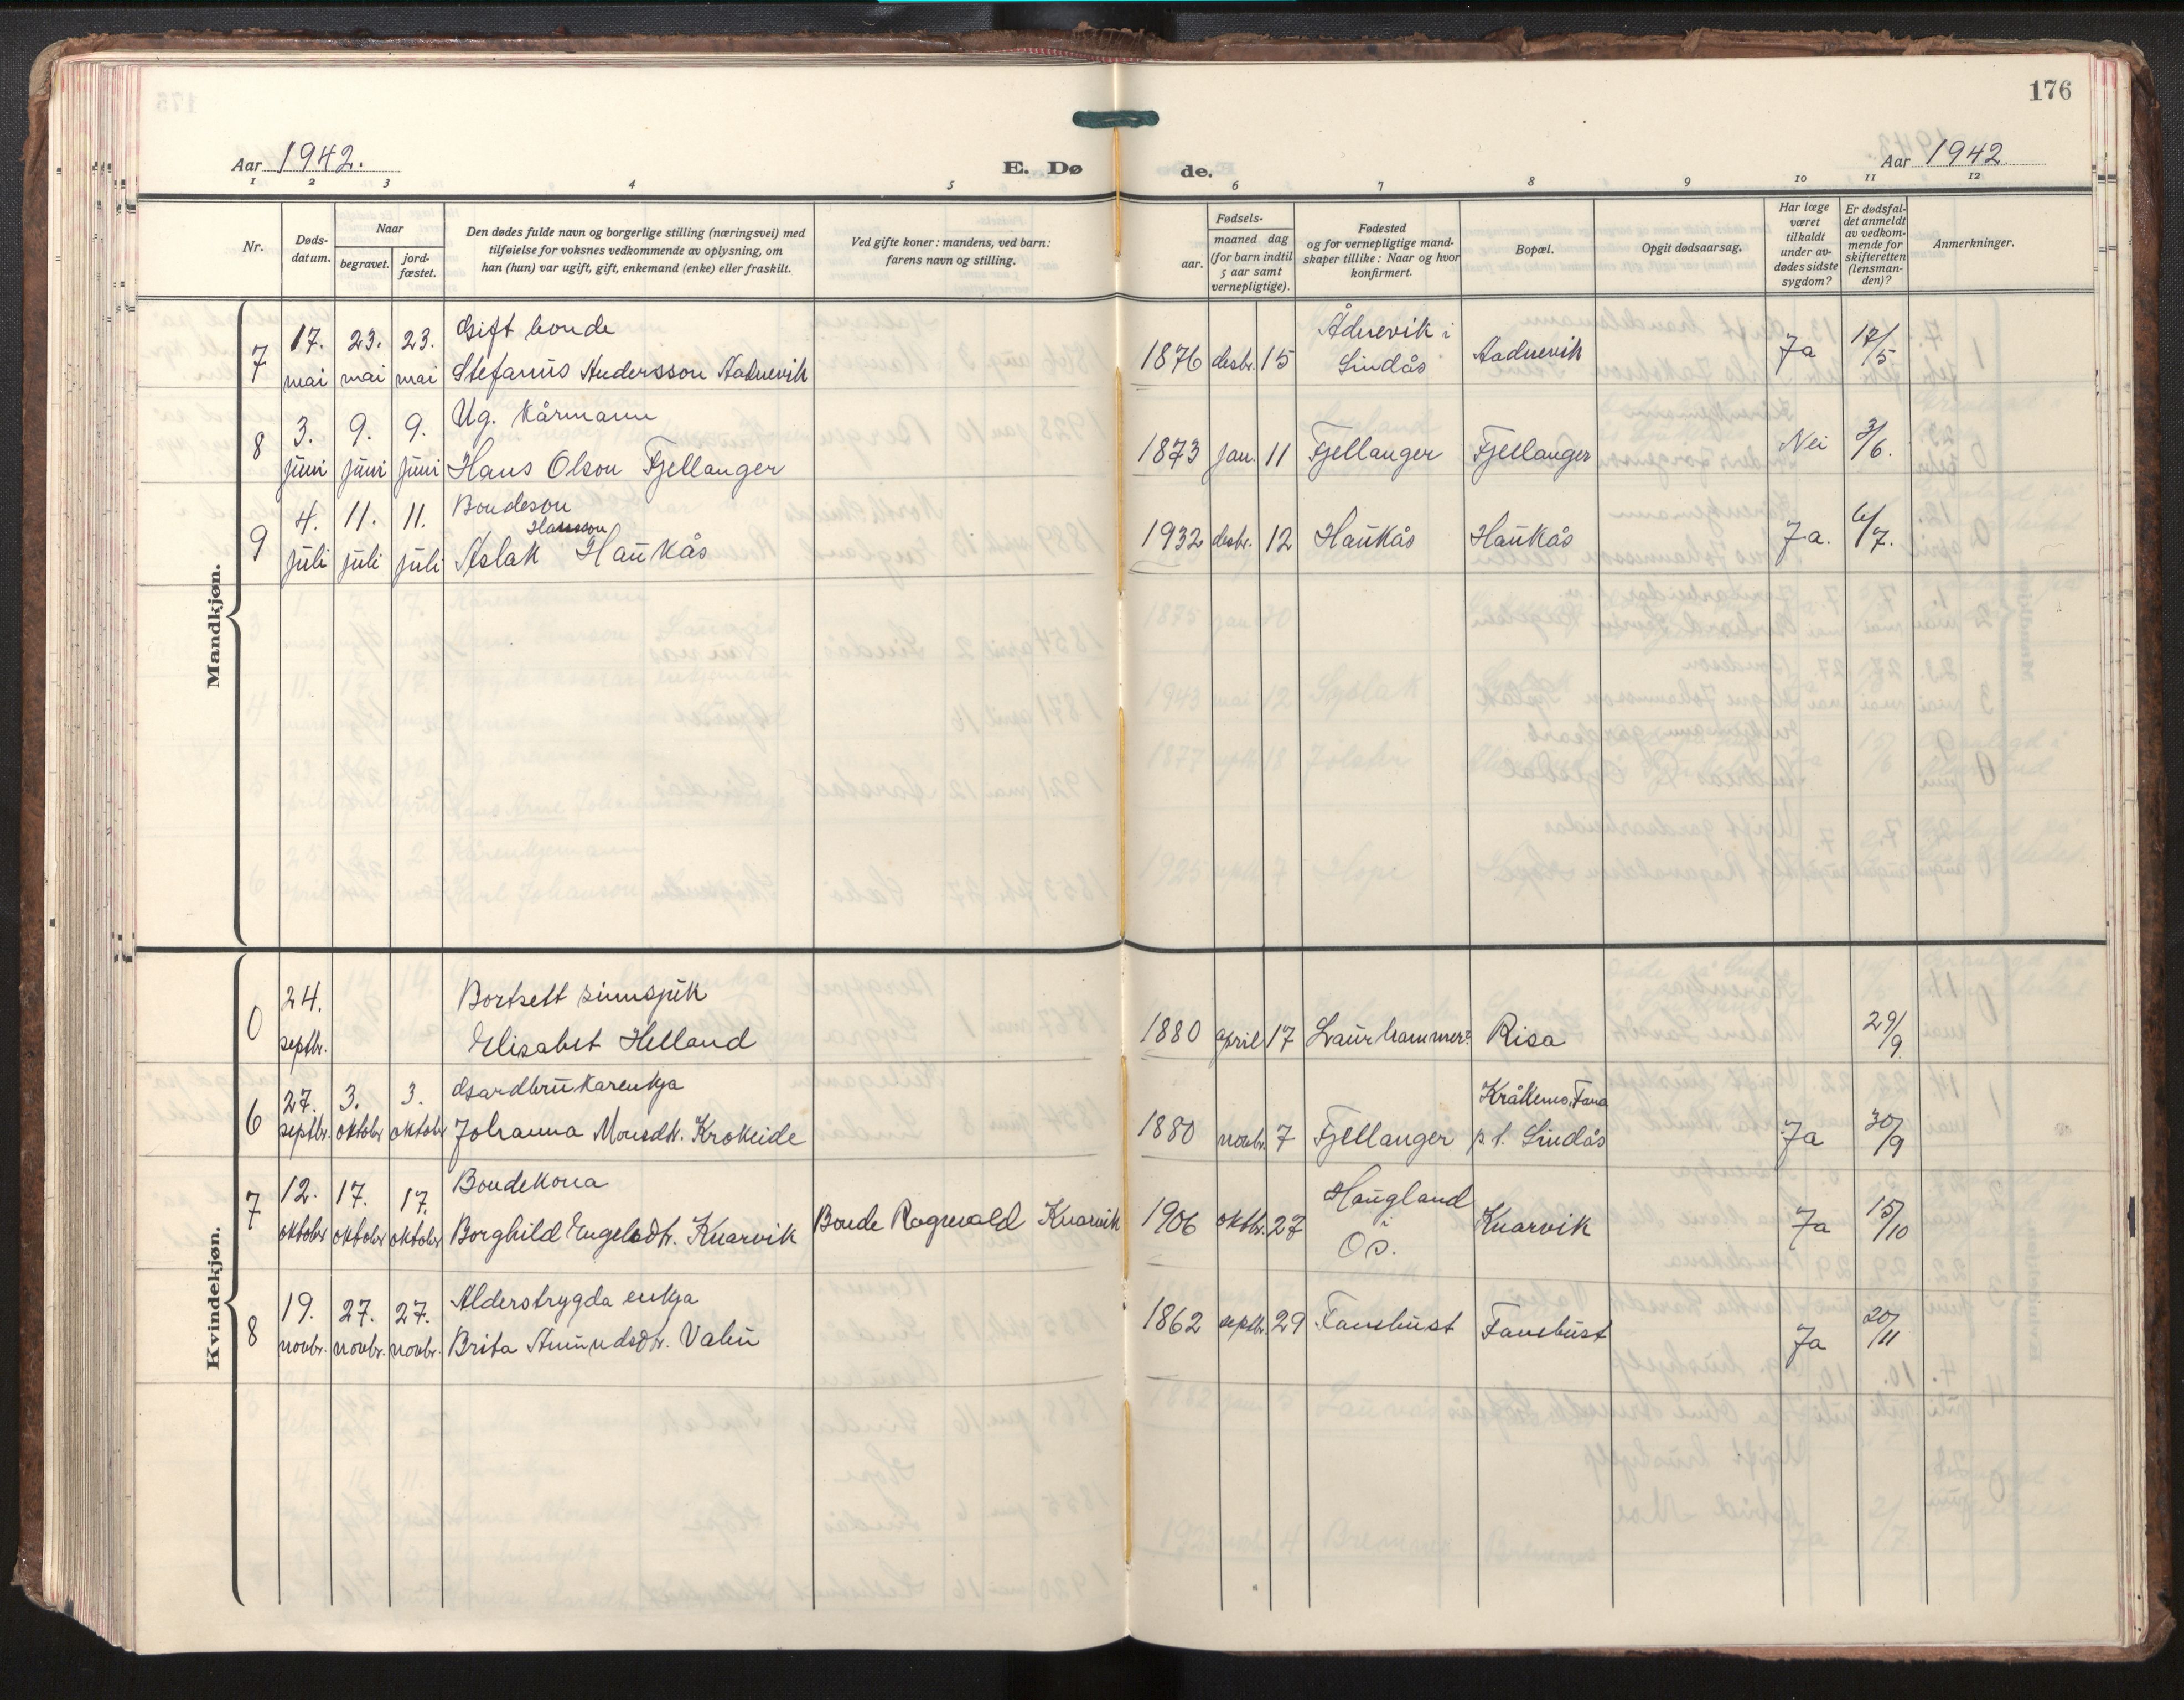 176
Aar 1942.
E. Dø de.
Aar 1942
1 2 3 4 5 6 7 8 9 10 11 12
Nr.
Døds-
datum.
Naar
begravet.
jord-
fæstet.
Den dødes fulde navn og borgerlige stilling (næringsvei) med
tilføielse for voksnes vedkommende av oplysning, om
han (hun) var ugift, gift, enkemand (enke) eller fraskilt.
Ved gifte koner: mandens, ved barn:
farens navn og stilling.
Fødsels-
aar.
maaned dag
(for barn indtil
5 aar samt
vernepligtige).
Fødested
og for vernepligtige mand-
skaper tillike: Naar og hvor
konfirmert.
Bopæl.
Opgit dødsaarsag.
Har læge
været
tilkaldt
under av-
dødes sidste
sygdom?
Er dødsfal-
det anmeldt
av vedkom-
mende for
skifteretten
(lensman-
den)?
Anmerkninger.
Mandkjøn.
17. 23. 23. Gift bonde Ådnevik i 17/5.
7 mai mai mai Stefanus Andersson Aadnevik 1876 desbr. 15 Lindås Aadnevik Ja
3. 9. 9. Ug. kårmann
8 juni juni juni Hans Olson Fjellanger 1873 jan. 11 Fjellanger Fjellanger Nei 3/6.
4. 11. 11. Bondeson
Hansson
9 juli juli juli Aslak Haukås 1932 desbr. 12 Haukås Haukås Ja. 6/7.
Kvindekjøn.
24. Bortsett sinnsjuk
0 septbr. Elisabet Helland 1880 april 17 Laurhammer? Risa 29/9.
27. 3. 3. Gardbrukarenkja Kråkenes, Fana
6 septbr. oktobr oktobr Johanna Monsdtr. Krokeide 1880 novbr. 7 Fjellanger p t. Lindås Ja 30/9
12. 17. 17. Bondekona Haugland
7 oktobr oktobr oktobr Borghild Engelsdtr. Knarvik Bonde Ragnvald Knarvik 1906 oktbr. 27 i Os. Knarvik Ja 15/10
19. 27. 27. Alderstrygda enkja
8 novbr. novbr. novbr. Brita Amundsdtr. Valen 1862 septbr. 29 Fanebust Fanebust Ja 20/11